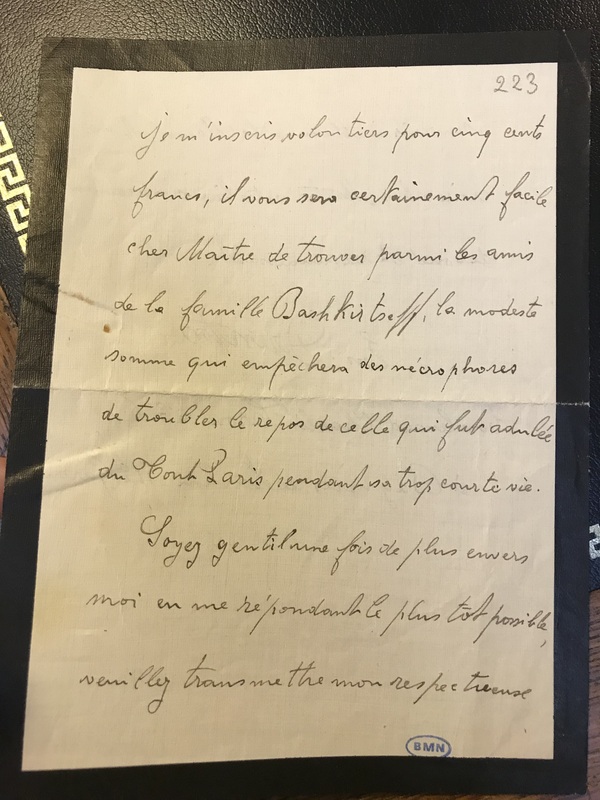 223
je m'inscris volontiers pour cinq cents
francs, il vous sera certainement facile
cher Maître de trouver parmi les amis
de la famille Bashkirtseff, la modeste
somme qui empêchera des nécrophores
de troubler le repos de celle qui fut adulée
du Tout Paris pendant sa trop courte vie.
Soyez gentil une fois de plus envers
moi en me répondant le plus tôt possible,
veuillez transmettre mon respectueuse
BMN